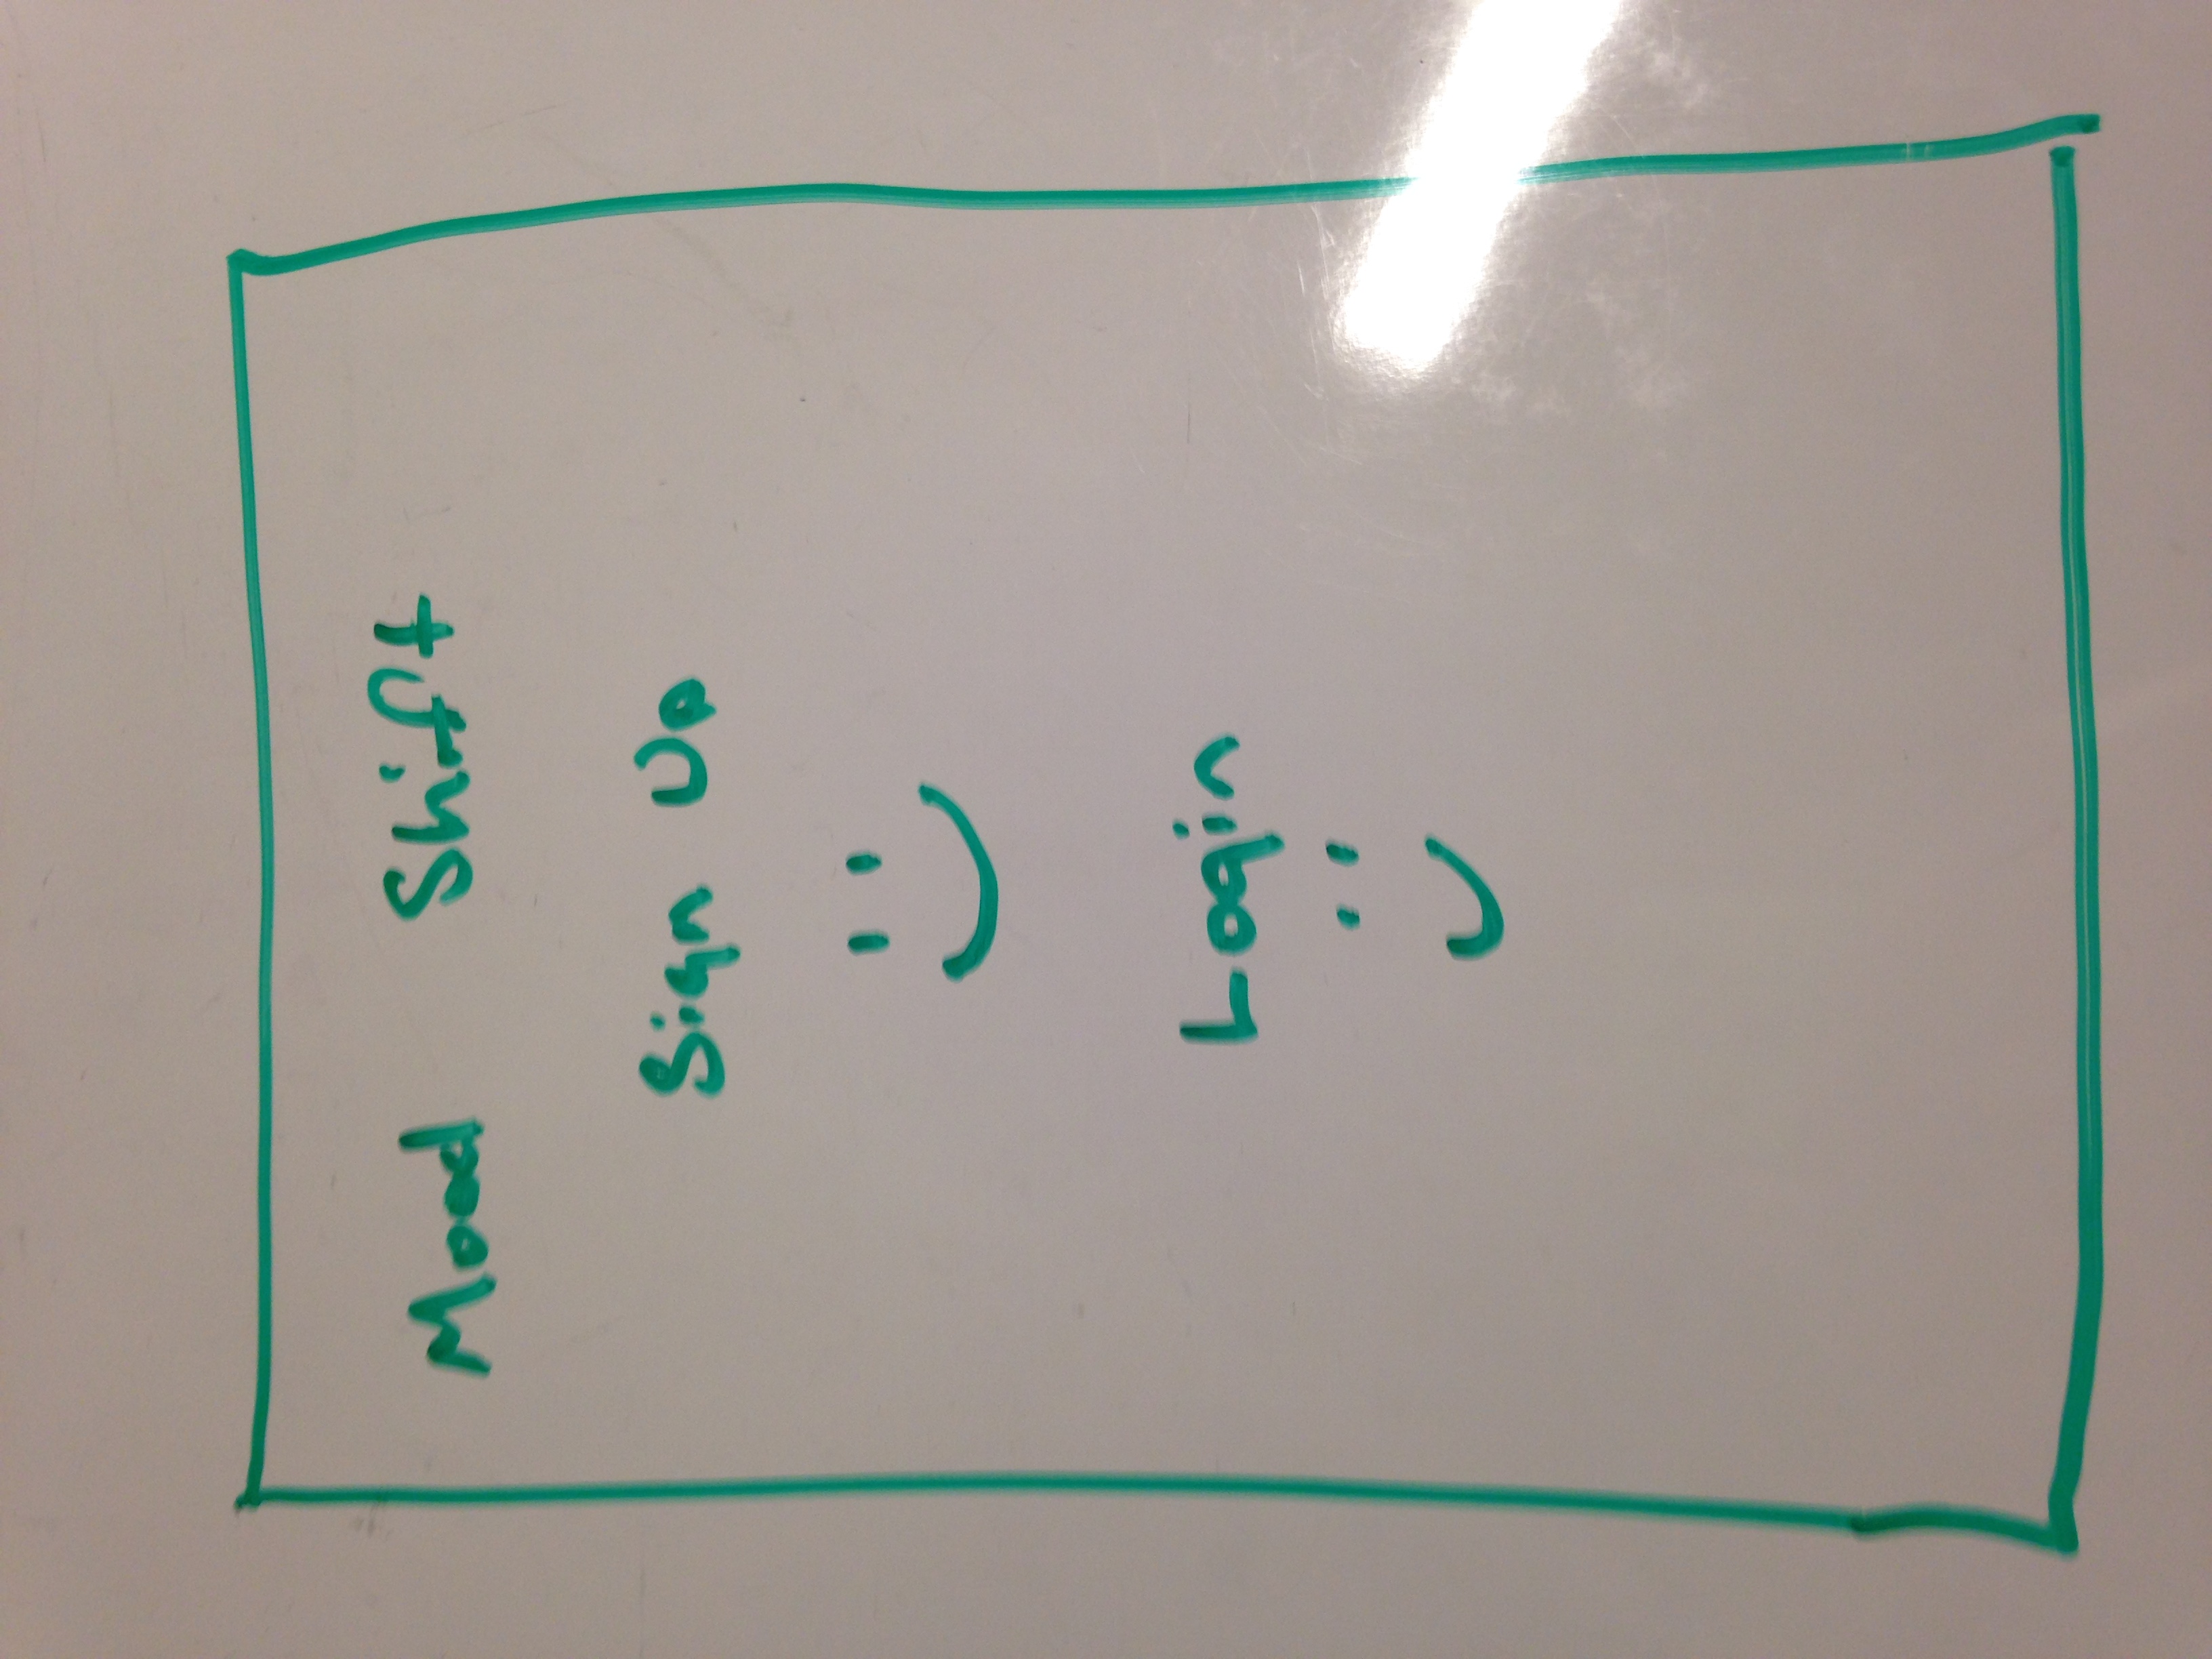 Mood Shift
Sign Up
Login